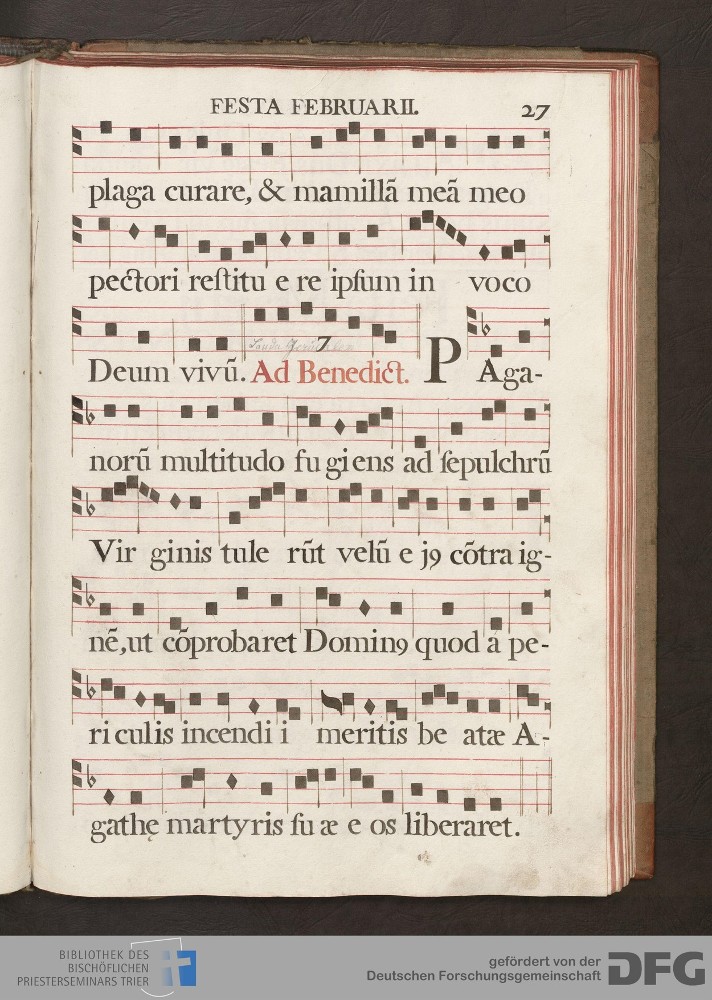 FESTA FEBRUARII. 27
plaga curare, & mamillã meã meo
pectori reſtitu e re ipſum in voco
Deum vivũ. Ad Benedict. 7 P Aga-
norũ multitudo fu gi ens ad ſepulchrũ
Vir ginis tule rũt velũ e jꝰ cõtra ig-
nẽ, ut cõprobaret Dominꝰ quod a pe-
ri culis incendi i meritis be atæ A-
gathę martyris ſu æ e os liberaret.
BIBLIOTHEK DES
BISCHÖFLICHEN
PRIESTERSEMINARS TRIER
gefördert von der
Deutschen Forschungsgemeinschaft DFG